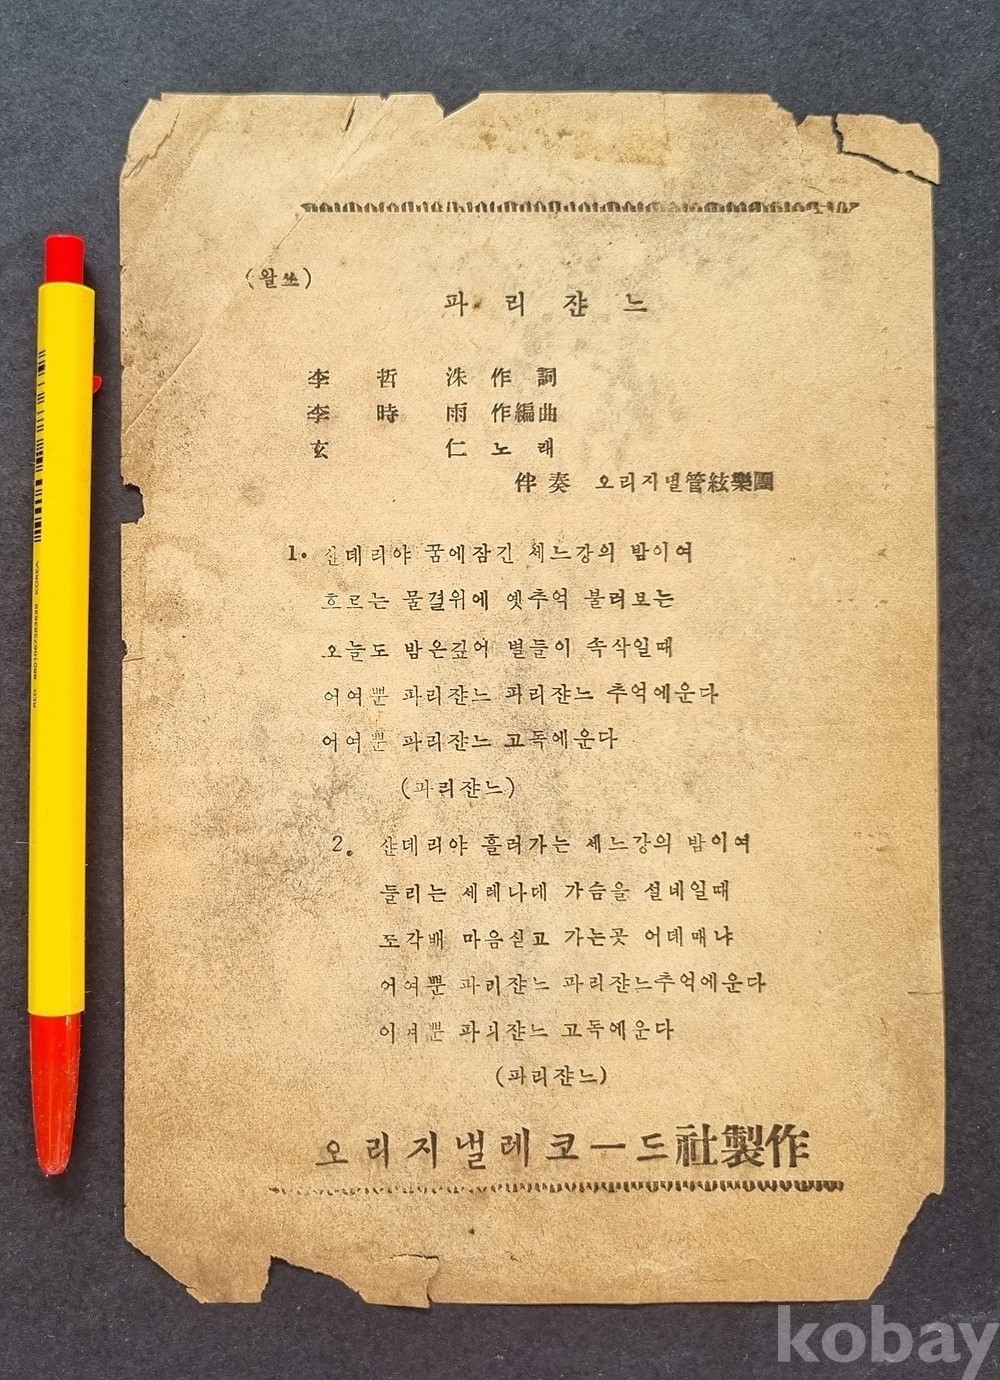 (왈쓰)
파리쟌느
李哲洙作詞
李時雨作編曲
玄仁노래
伴奏 오리지낼管絃樂團
1. 샨데리야 꿈에잠긴 세느강의 밤이여
흐르는 물결위에 옛추억 불러보는
오늘도 밤은깊어 별들이 속삭일때
어여뿐 파리쟌느 파리쟌느 추억에운다
어여뿐 파리쟌느 고독에운다
(파리쟌느)
2. 샨데리야 흘러가는 세느강의 밤이여
들리는 세레나데 가슴을 설네일때
쪼각배 마음싣고 가는곳 어데메냐
어여뿐 파리쟌느 파리쟌느추억에운다
어여뿐 파리쟌느 고독에운다
(파리쟌느)
오리지낼레코ー드社製作
KOREA
8801067363639
RED
kobay